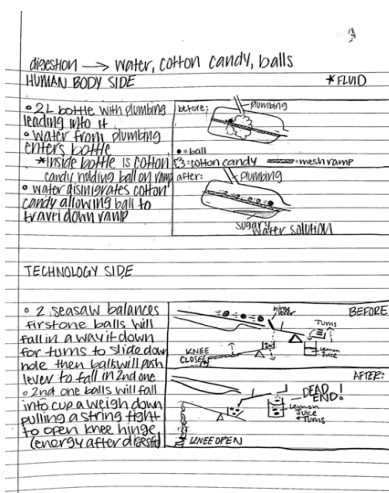 digestion → water, cotton candy, balls
HUMAN BODY SIDE
*FLUID
• 2L bottle with plumbing
leading into it
• water from plumbing
enters bottle
*inside bottle is cotton
candy holding ball on ramp
• water disinigrates cotton
candy allowing ball to
travel down ramp
before:
plumbing
• = ball
= cotton candy
= mesh ramp
after:
plumbing
sugary water solution
TECHNOLOGY SIDE
• 2 seasaw balances
first one balls will
fall in a way it down
for tums to slide down
hole then balls will push
lever to fall in 2nd one
• 2nd one balls will fall
into cup a weigh down
pulling a string tight
to open knee hinge
(energy after digested)
BEFORE
TUMS
Lemon
Juice
KNEE
CLOSED
AFTER:
DEAD
END!
Lemon
Juice
+Tums
KNEE OPEN